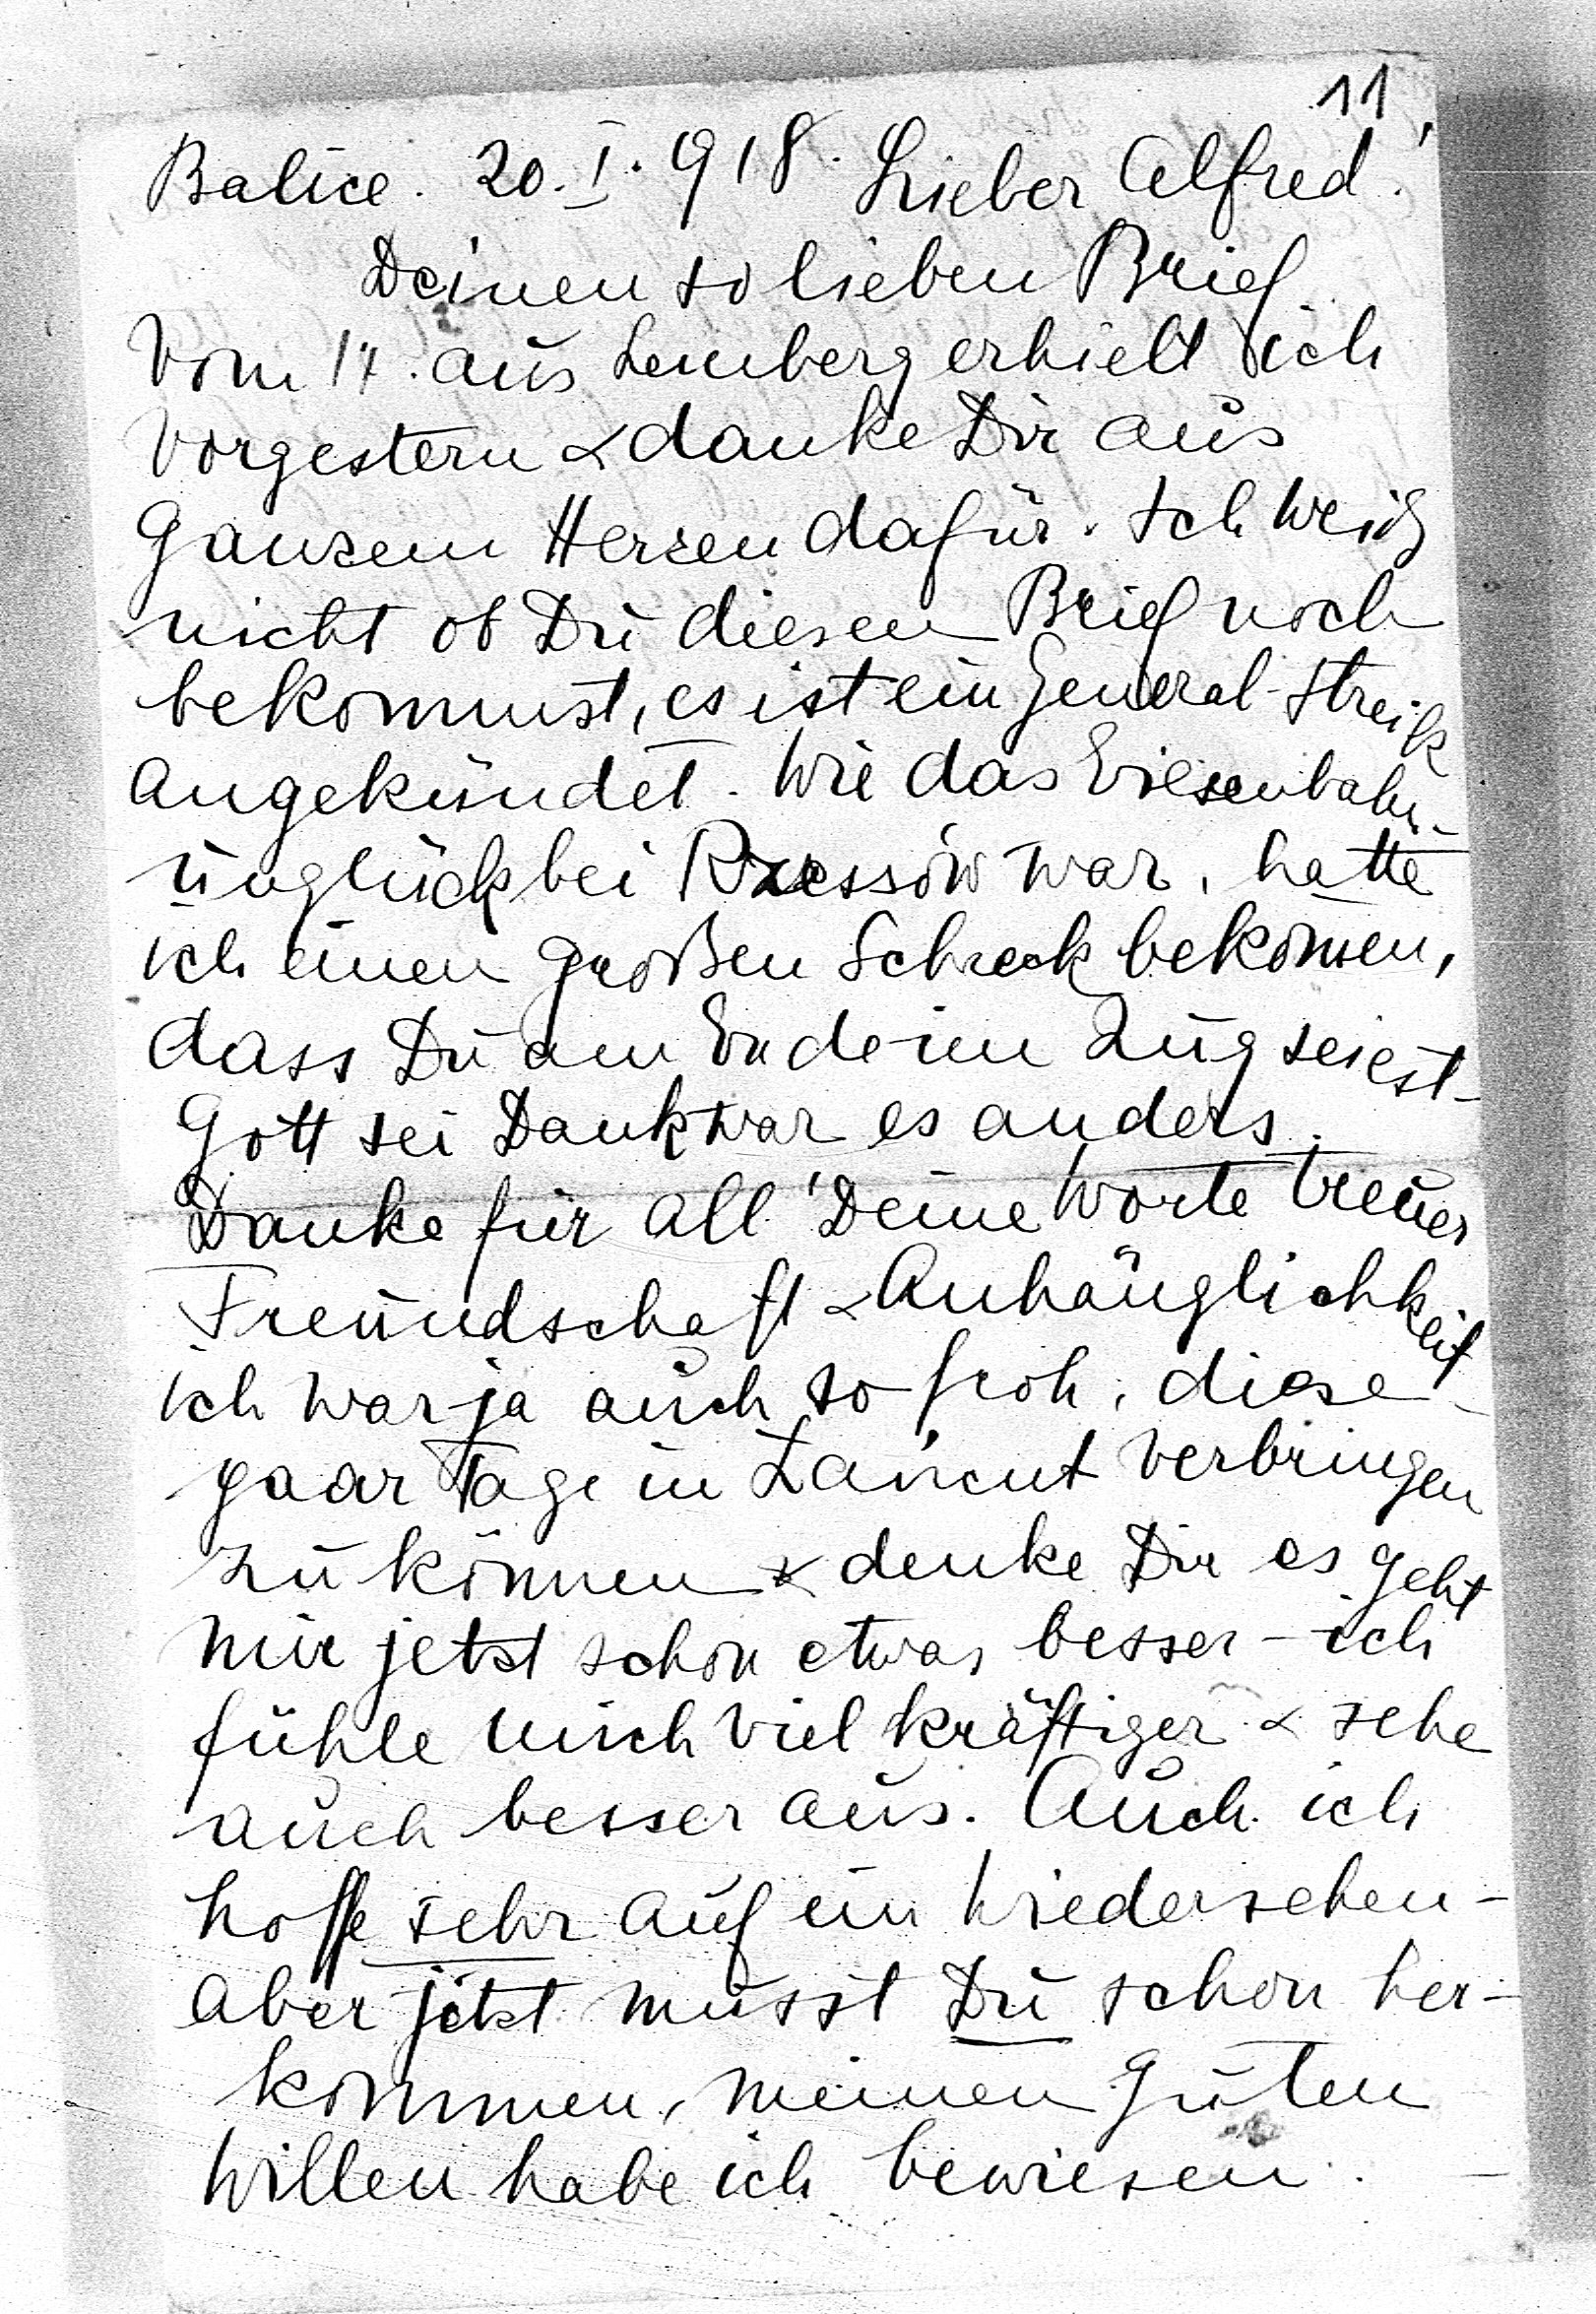 11
Balice. 20. I. 918. Lieber Alfred!
Deinen so lieben Brief
vom 14. aus Lemberg erhielt ich
vorgestern & danke Dir aus
ganzem Herzen dafür. Ich weiß
nicht ob Du diesen Brief noch
bekommst, es ist ein General-Streik
angekündet. Wie das Eisenbahn-
unglück bei Rzessów war, hatte
ich einen großen Schreck bekom̄en,
dass Du am Ende im Zug seiest-
Gott sei Dank war es anders.
Danke für all' Deine Worte treuer
Freundschaft & Anhänglichkeit
ich war ja auch so froh, diese
paar Tage in Łańcut verbringen
zu können & denke Dir es geht
mir jetzt schon etwas besser - ich
fühle mich viel kräftiger & sehe
auch besser aus. Auch ich
hoffe sehr auf ein Wiedersehen -
aber jetzt musst Du schon her-
kommen, meinen guten
Willen habe ich bewiesen.